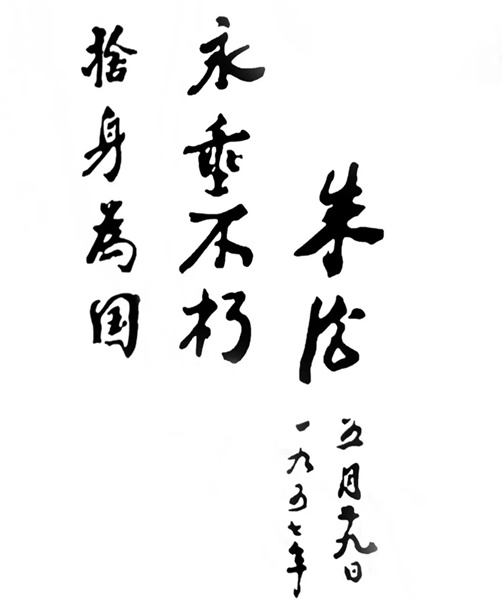 捨身為国
永垂不朽
朱德
一九五七年
五月十九日